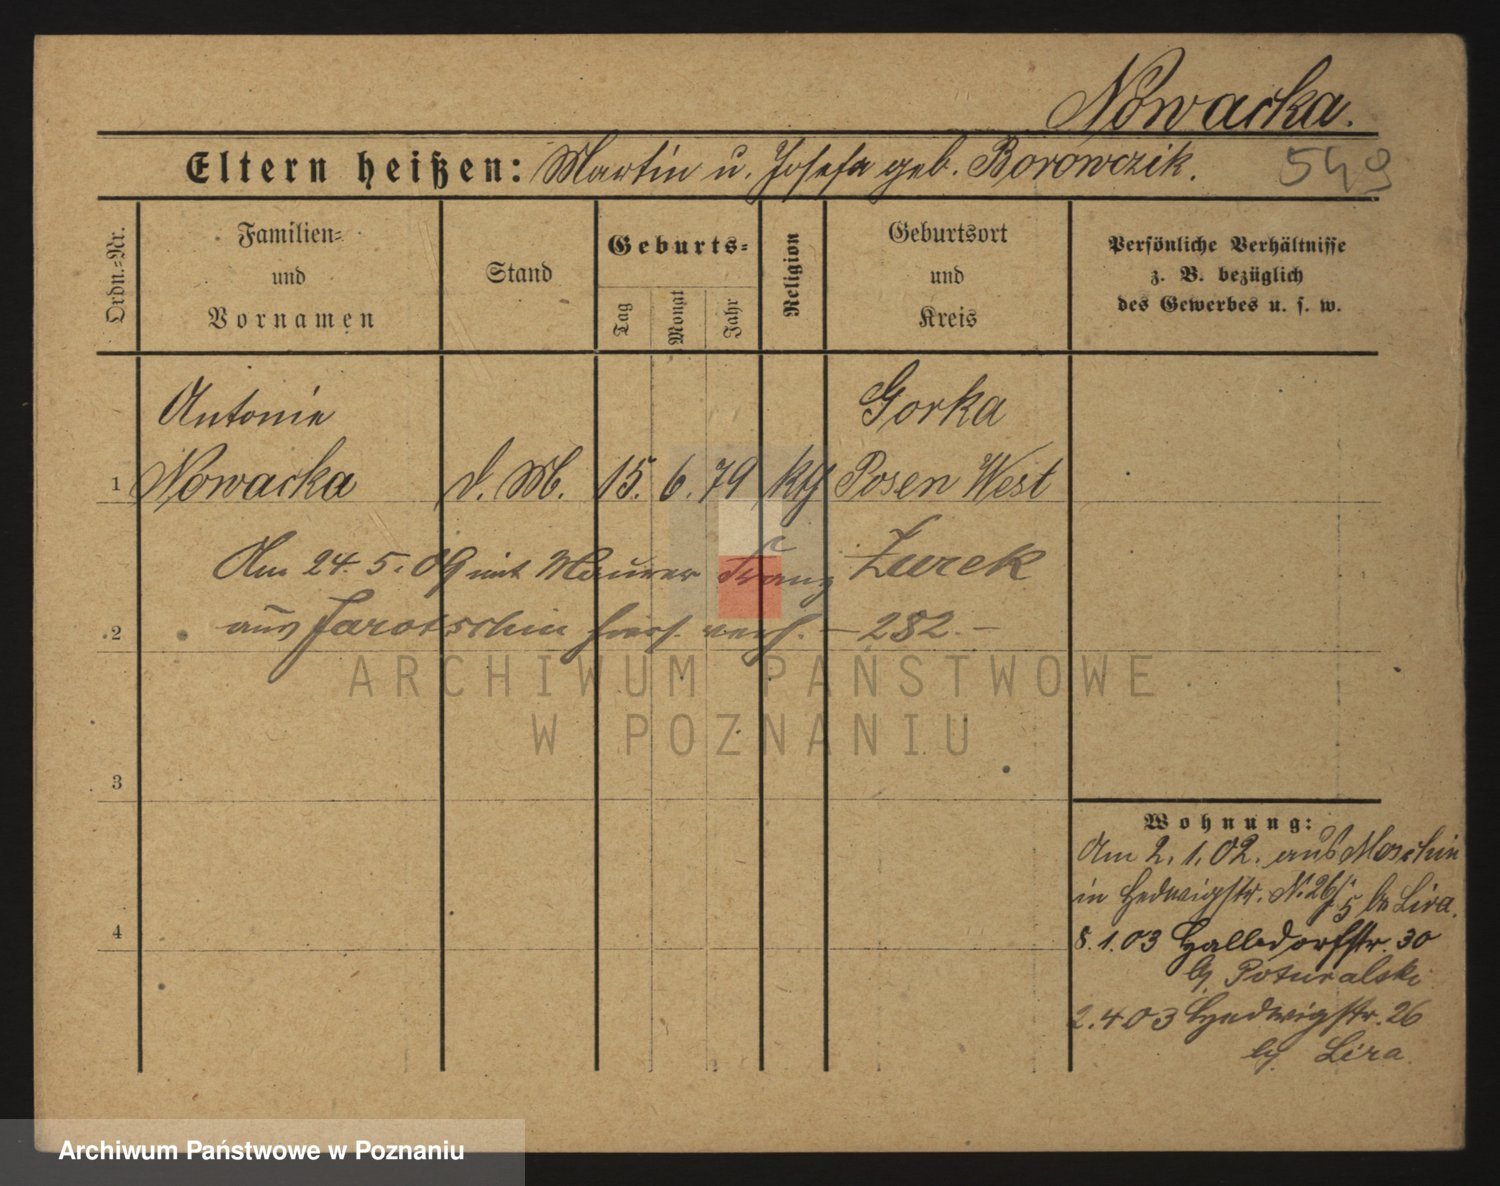 Nowacka.
Eltern heißen: Martin u. Josefa geb. Borowczik.
549
Ordn.-Nr.
Familien-
und
Vornamen
Stand
Geburts-
Tag
Monat
Jahr
Religion
Geburtsort
und
Kreis
Persönliche Verhältnisse
z. B. bezüglich
des Gewerbes u. s. w.
Antonie
Gorka
1 Nowacka d. M. 15. 6. 79 kth Posen West
Am 24. 5. 09 mit Maurer Franz Zurek
2 aus Jarotschin verh. – 282. –
ARCHIWUM PAŃSTWOWE
W POZNANIU
3
4
Wohnung:
Am 2. 1. 02. aus Moschin
in Hedwigstr. N. 26 5 b Lira.
8. 1. 03 Halldorfstr. 30
b/ Poturalski
2. 4 03 Hedwigstr. 26
b/ Lira
Archiwum Państwowe w Poznaniu